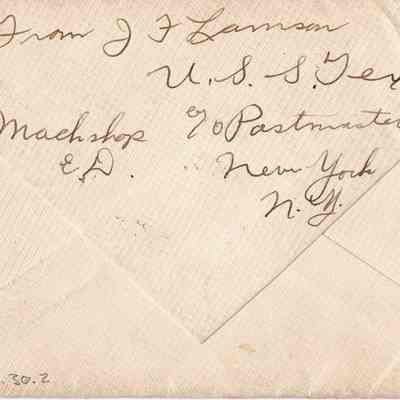 From J F Lamson
U. S. S. Tex
Machshop c/o Postmaster
E. D. New York
N. Y.
.30.2